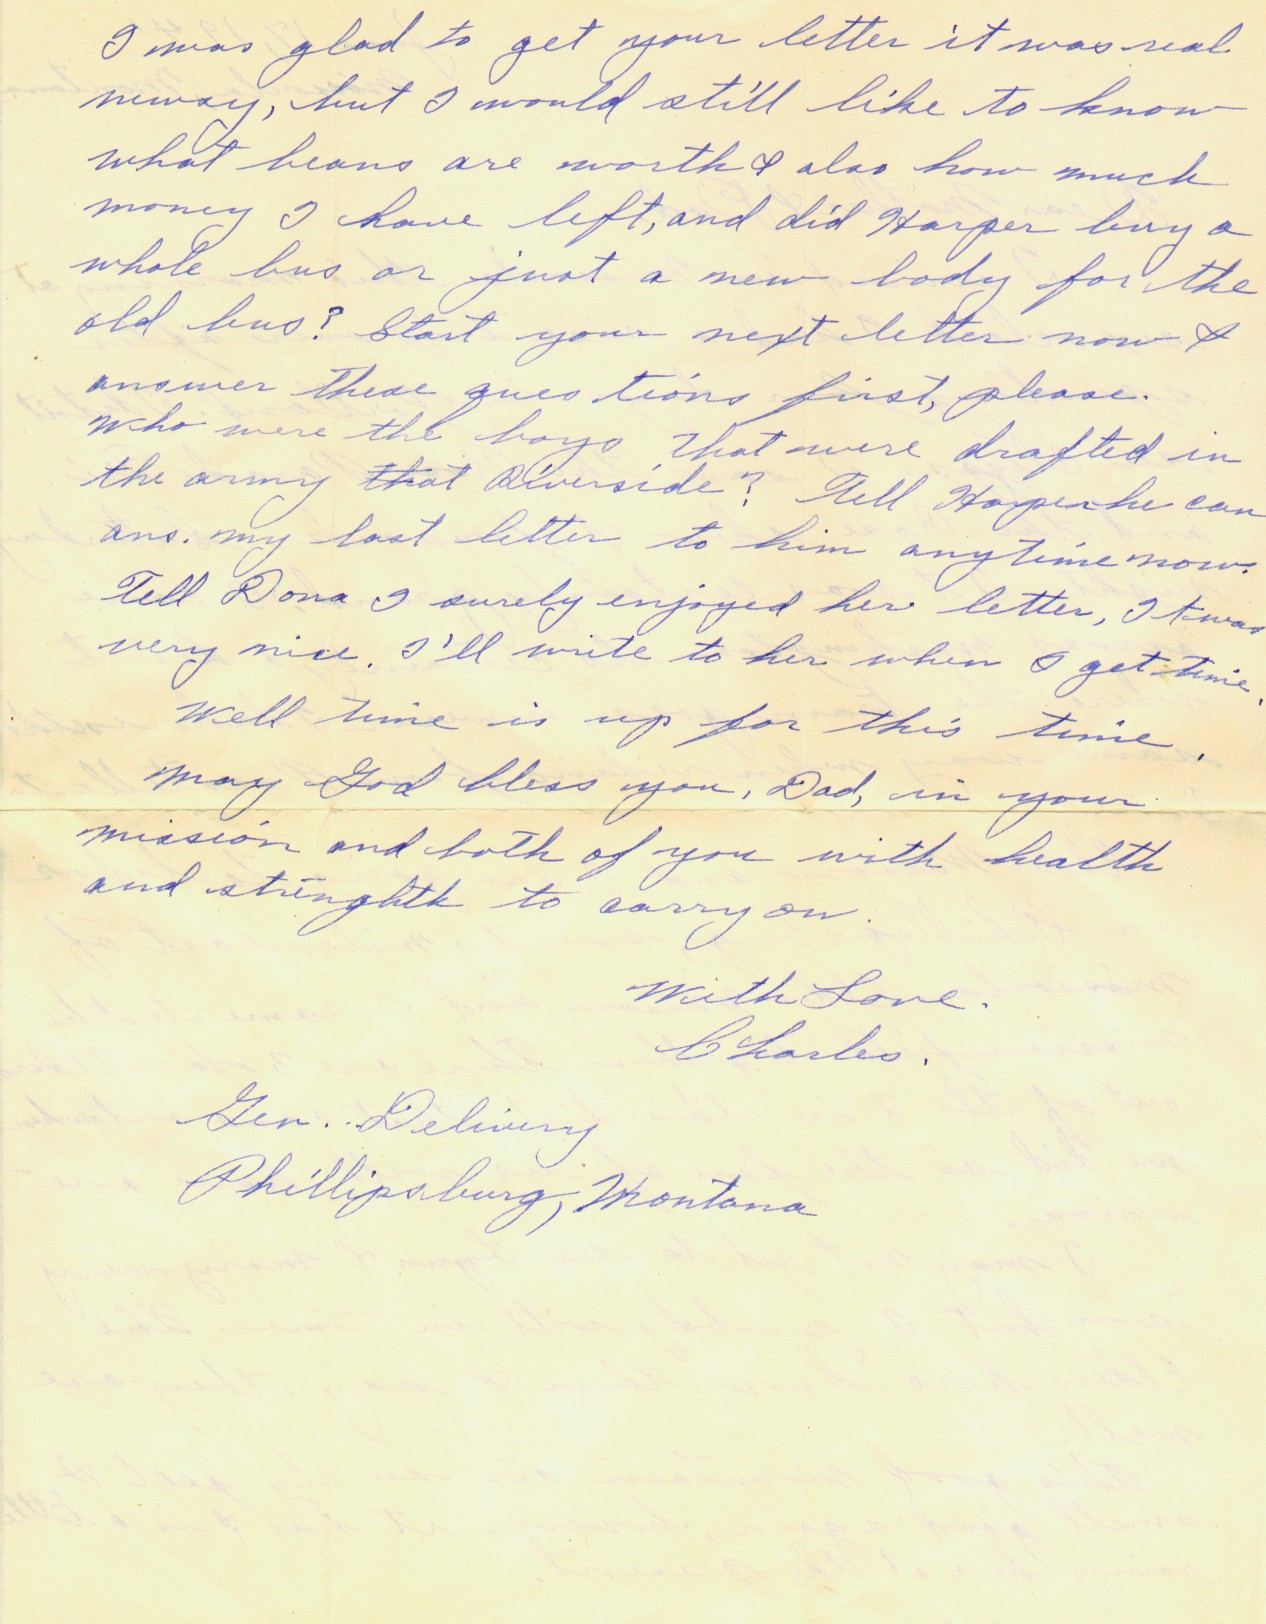 I was glad to get your letter it was real
newsy, but I would still like to know
what beans are worth & also how much
money I have left, and did Harper buy a
whole bus or just a new body for the
old bus? Start your next letter now &
answer these questions first, please.
Who were the boys that were drafted in
the army that Riverside? Tell Harper he can
ans. my last letter to him anytime now.
Tell Dona I surely enjoyed her letter, It was
very nice. I'll write to her when I get time.
Well time is up for this time.
May God bless you, Dad, in your
mission and both of you with health
and strenghth to carry on.
With Love.
Charles.
Gen. Delivery
Phillipsburg, Montana